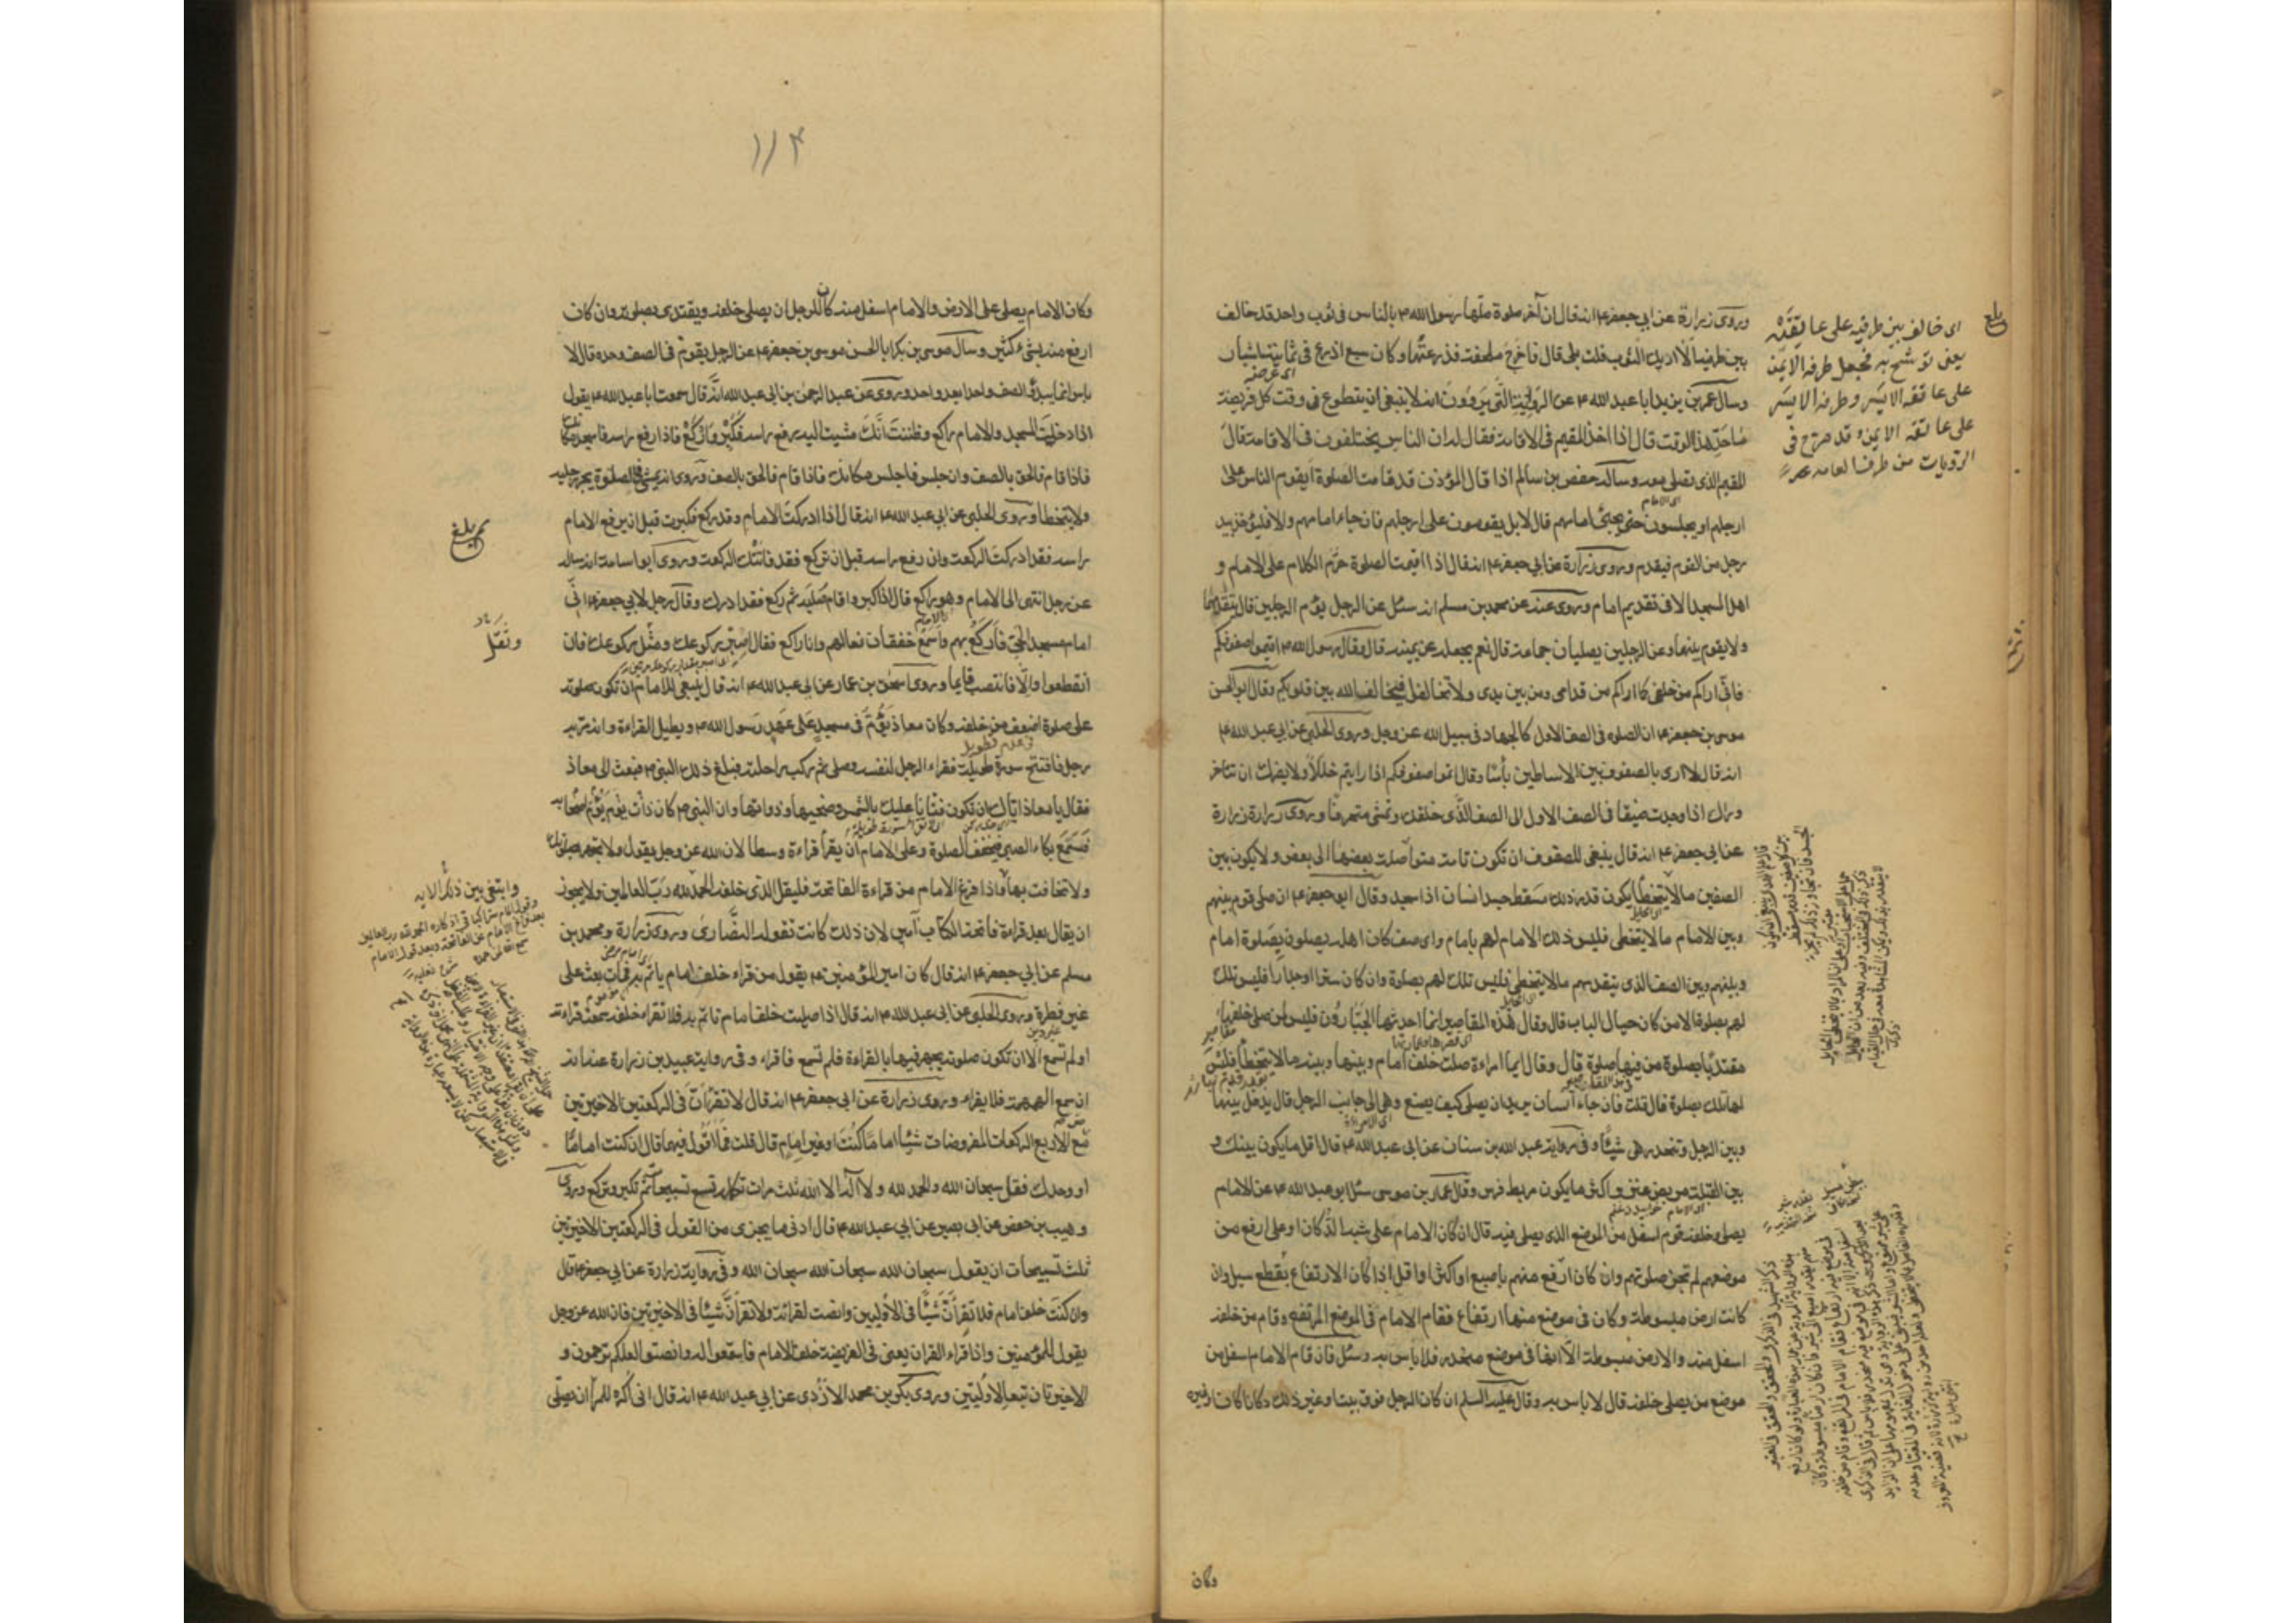 وروى زرارة عن ابي جعفر ع انه قال ان آخر صلوة صلّها رسول الله ص بالناس في ثوب واحد قد خالف
بين طرفيه ألا اريك الثوب قلت بلى قال فاخرج ملحفة فذرعتها وكان سبع اذرع في ثمانية اشبار
وسأل عمر بن يزيد ابا عبد الله ع عن الرواية التي يروون انه لا ينبغي ان يتطوع في وقت كل فريضة
ما حدّ هذا الوقت قال اذا اخذ المقيم في الاقامة فقال له ان الناس يختلفون في الاقامة قال
المقيم الذي تصلى معه وسأله حفص بن سالم اذا قال المؤذن قد قامت الصلوة أيقوم الناس على
ارجلهم او يجلسون حتى يجئ امامهم قال لا بل يقومون على ارجلهم فان جاء امامهم والا فليؤخذ بيد
رجل من القوم فيقدم وروى زرارة عن ابي جعفر ع انه قال اذا اقيمت الصلوة حرّم الكلام على الامام و
اهل المسجد الا في تقديم امام وروى عنه عن محمد بن مسلم انه سئل عن الرجل يؤم الرجلين قال يتقدمهما
ولا يقوم بينهما وعن الرجلين يصليان جماعة قال نعم يجعله عن يمينه قال وقال رسول الله ص اقيموا صفوفكم
فانّى اراكم من خلفي كما اراكم من قدامى ومن بين يدى ولا تخالفوا فيخالف الله بين قلوبكم وقال ابو الحسن
موسى بن جعفر ع ان الصلوه في الصف الاول كالجهاد في سبيل الله عز وجل وروى الحلبي عن ابي عبد الله ع
انه قال لا ارى بالصفوف بين الاساطين بأسًا وقال اتموا صفوفكم اذا رايتم خللًا ولا يضرك ان تتأخر
وراك اذا وجدت ضيقا في الصف الاول الى الصف الذى خلفك وتمشى متحرفًا وروى زرارة
عن ابي جعفر ع انه قال ينبغي للصفوف ان تكون تامة متواصلة بعضها الى بعض ولا يكون بين
الصفين ما لا يتخطا يكون قدر ذلك مسقط جسد انسان اذا سجد وقال ابو جعفر ع ان صلى قوم بينهم
وبين الامام ما لا يتخطى فليس ذلك الامام لهم بامام واى صف كان اهله يصلون بصلوة امام
وبينهم وبين الصف الذى يتقدمهم ما لا يتخطى فليس تلك لهم بصلوة وان كان سترا او جدارا فليس تلك
لهم بصلوة الا من كان حيال الباب قال وقال هذه المقاصير انما احدثها الجبّارون فليس لمن صلى خلفها
مقتديًا بصلوة من فيها صلوة قال وقال ايما امراءة صلت خلف امام وبينها وبينه ما لا يتخطا فليس
لها تلك بصلوة قال قلت فان جاء انسان يريد ان يصلى كيف يصنع وهى الى جانب الرجل قال يدخل بينها
وبين الرجل وتنحدر هى شيئًا وفي رواية عبد الله بن سنان عن ابي عبد الله ع قال اقل ما يكون بينك و
بين القبلة مربض عنز واكثر ما يكون مربط فرس وقال عمار بن موسى سئل ابو عبد الله ع عن الامام
يصلى وخلفه قوم اسفل من الموضع الذى يصلى فيه قال ان كان الامام على شبه الدكان او على ارفع من
موضعهم لم تجز صلوتهم وان كان ارفع منهم باصبع او اكثر او اقل اذا كان الارتفاع بقطع سيل وان
كانت ارض مبسوطة وكان في موضع منها ارتفاع فقام الامام في الموضع المرتفع وقام من خلفه
اسفل منه والارض مبسوطة الا انها في موضع منحدر فلا باس به وسئل فان قام الامام اسفل من
موضع من يصلى خلفه قال لا باس به وقال عليه السلم ان كان الرجل فوق بيت او غير ذلك دكانا كان او غيره
وكان
بلغ
اى خالف بين طرفيه على عاتقه
يعنى توشح به فجعل طرفه الايمن
على عاتقه الايسر وطرفه الايسر
على عاتقه الايمن وقد صرح في
الروايات من طرق العامه
١١٤
وكان الامام يصلى على الارض والامام اسفل منه كان للرجل ان يصلى خلفه ويقتدى بصلوته وان كان
ارفع منه بشئ كثير وسأل موسى بن بكر ابا الحسن موسى بن جعفر ع عن الرجل يقوم في الصف وحده قال لا
باس انما يبدؤ الصف واحدا بعد واحد وروى عن عبد الرحمن بن ابي عبد الله انه قال سمعت ابا عبد الله ع يقول
اذا دخلت المسجد والامام راكع وظننت انّك مشيت اليه يرفع راسه فكبّر واركع فاذا رفع راسه فاسجد مكانك
فاذا قام فالحق بالصف وان جلس فاجلس مكانك فاذا قام فالحق بالصف وروى انه يمشى في الصلوة يجر رجليه
ولا يتخطا وروى الحلبي عن ابي عبد الله ع انه قال اذا ادركت الامام وقد ركع فكبرت قبل ان يرفع الامام
راسه فقد ادركت الركعة وان رفع راسه قبل ان تركع فقد فاتتك الركعة وروى ابو اسامة انه ساله
عن رجل انتهى الى الامام وهو راكع قال اذا كبر واقام صلبه ثم ركع فقد ادرك وقال رجل لابي جعفر ع انّى
امام مسجد الحىّ فأركع بهم واسمع خفقان نعالهم وانا راكع فقال اصبر ركوعك ومثل ركوعك فان
انقطعوا والّا فانتصب قايما وروى اسحق بن عمار عن ابي عبد الله ع انه قال ينبغي للامام ان تكون صلوته
على صلوة اضعف من خلفه وكان معاذ يؤمّ في مسجد على عهد رسول الله ص ويطيل القراءة وانه مرّ به
رجل فافتتح سورة طويلة فقراء الرجل لنفسه وصلى ثم ركب راحلته فبلغ ذلك النبي ص فبعث الى معاذ
فقال يا معاذ اياك ان تكون فتّانا عليك بالشمس وضحيها وذواتها وان النبي ص كان ذات يوم يؤم اصحابه
فيسمع بكاء الصبى فيخفف الصلوة وعلى الامام ان يقرأ قراءة وسطا لان الله عز وجل يقول ولا تجهر بصلوتك
ولا تخافت بها واذا فرغ الامام من قراءة الفاتحة فليقل الذى خلفه الحمد لله ربّ العالمين ولا يجوز
ان يقال بعد قراءة فاتحة الكتاب آمين لان ذلك كانت تقوله النصارى وروى زرارة ومحمد بن
مسلم عن ابي جعفر ع انه قال كان امير المؤمنين ع يقول من قراء خلف امام ياتم به فمات بعث على
غير فطرة وروى الحلبي عن ابي عبد الله ع انه قال اذا صليت خلف امام تاتم به فلا تقراء خلفه سمعت قراءته
او لم تسمع الا ان تكون صلوة يجهر فيها بالقراءة فلم تسمع فاقراء وفي رواية عبيد بن زرارة عنه انه
ان سمع الهمهمة فلا يقراء وروى زرارة عن ابي جعفر ع انه قال لا تقرأنّ في الركعتين الاخيرتين
من الاربع الركعات المفروضات شيئا اماما كنت او غير امام قال قلت فما اقول فيهما قال ان كنت اماما
او وحدك فقل سبحان الله والحمد لله ولا اله الا الله ثلث مرات تكمله تسع تسبيحات ثم تكبر وتركع وروى
وهيب بن حفص عن ابي بصير عن ابي عبد الله ع قال ادنى ما يجزى من القول في الركعتين الاخيرتين
ثلث تسبيحات ان يقول سبحان الله سبحان الله سبحان الله وفي رواية زرارة عن ابي جعفر ع قال
وان كنت خلف امام فلا تقرأنّ شيئًا في الأوليين وانصت لقرائته ولا تقرأنّ شيئا في الاخيرتين فان الله عز وجل
يقول للمؤمنين واذا قراء القران يعنى في الفريضة خلف الامام فاستمعوا له وانصتوا لعلكم ترحمون و
الاخيرتان تبع الاوليتين وروى بكر بن محمد الازدى عن ابي عبد الله ع انه قال انى اكره للمرأ ان يصلى
ثم بلغ
وابتغ بين ذلك الايه